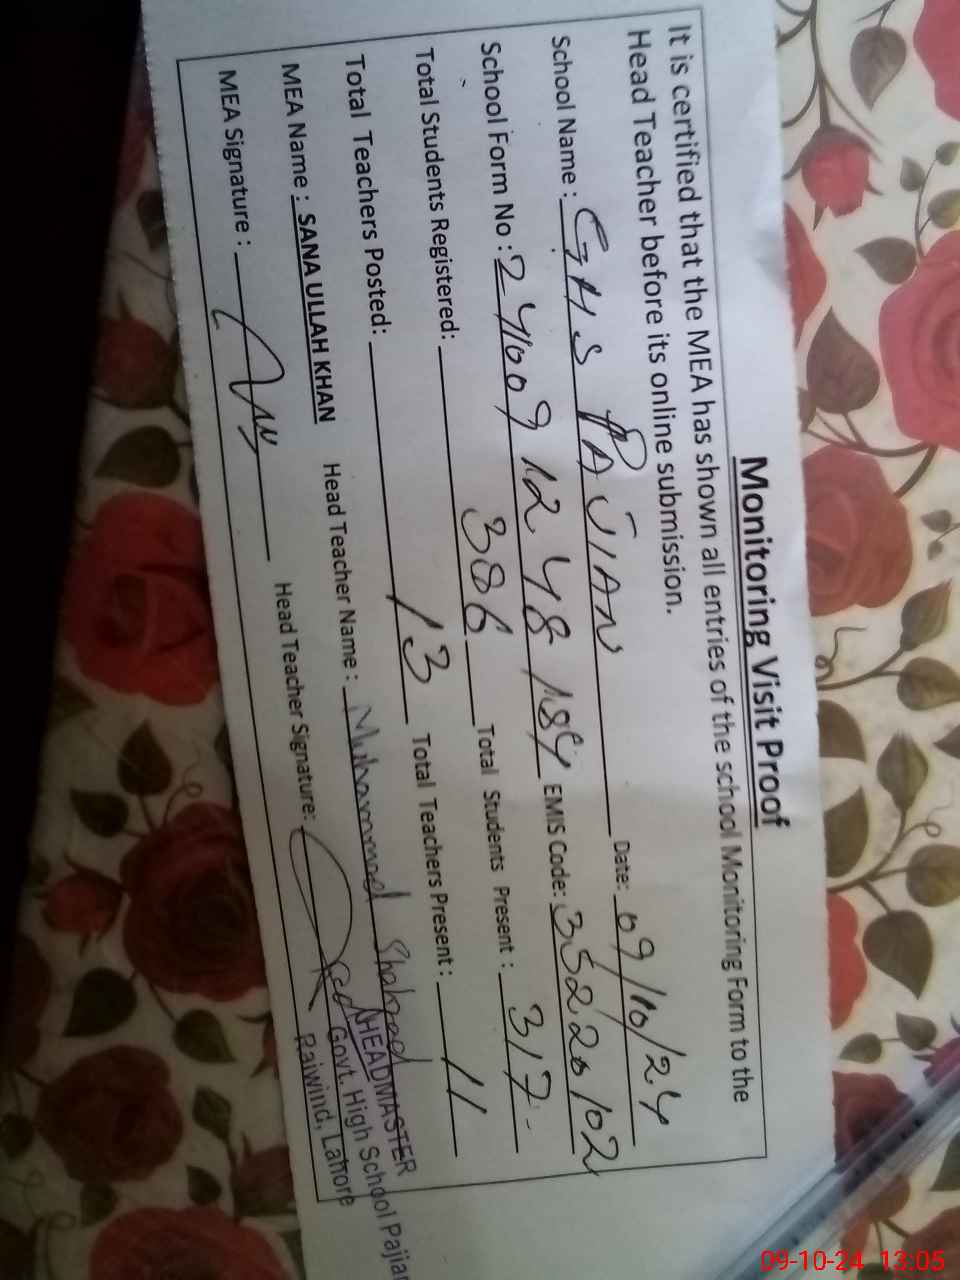 Monitoring Visit Proof
It is certified that the MEA has shown all entries of the school Monitoring Form to the
Head Teacher before its online submission.
School Name : GHS PAJIAN Date: 09/10/24
School Form No : 2410091248189 EMIS Code: 35220102
Total Students Registered: 386 Total Students Present : 317
Total Teachers Posted: 13 Total Teachers Present : 11
MEA Name : SANA ULLAH KHAN Head Teacher Name : Muhammad
MEA Signature : Head Teacher Signature:
HEADMASTER
Govt. High School Pajian
Raiwind, Lahore
09-10-24 13:05